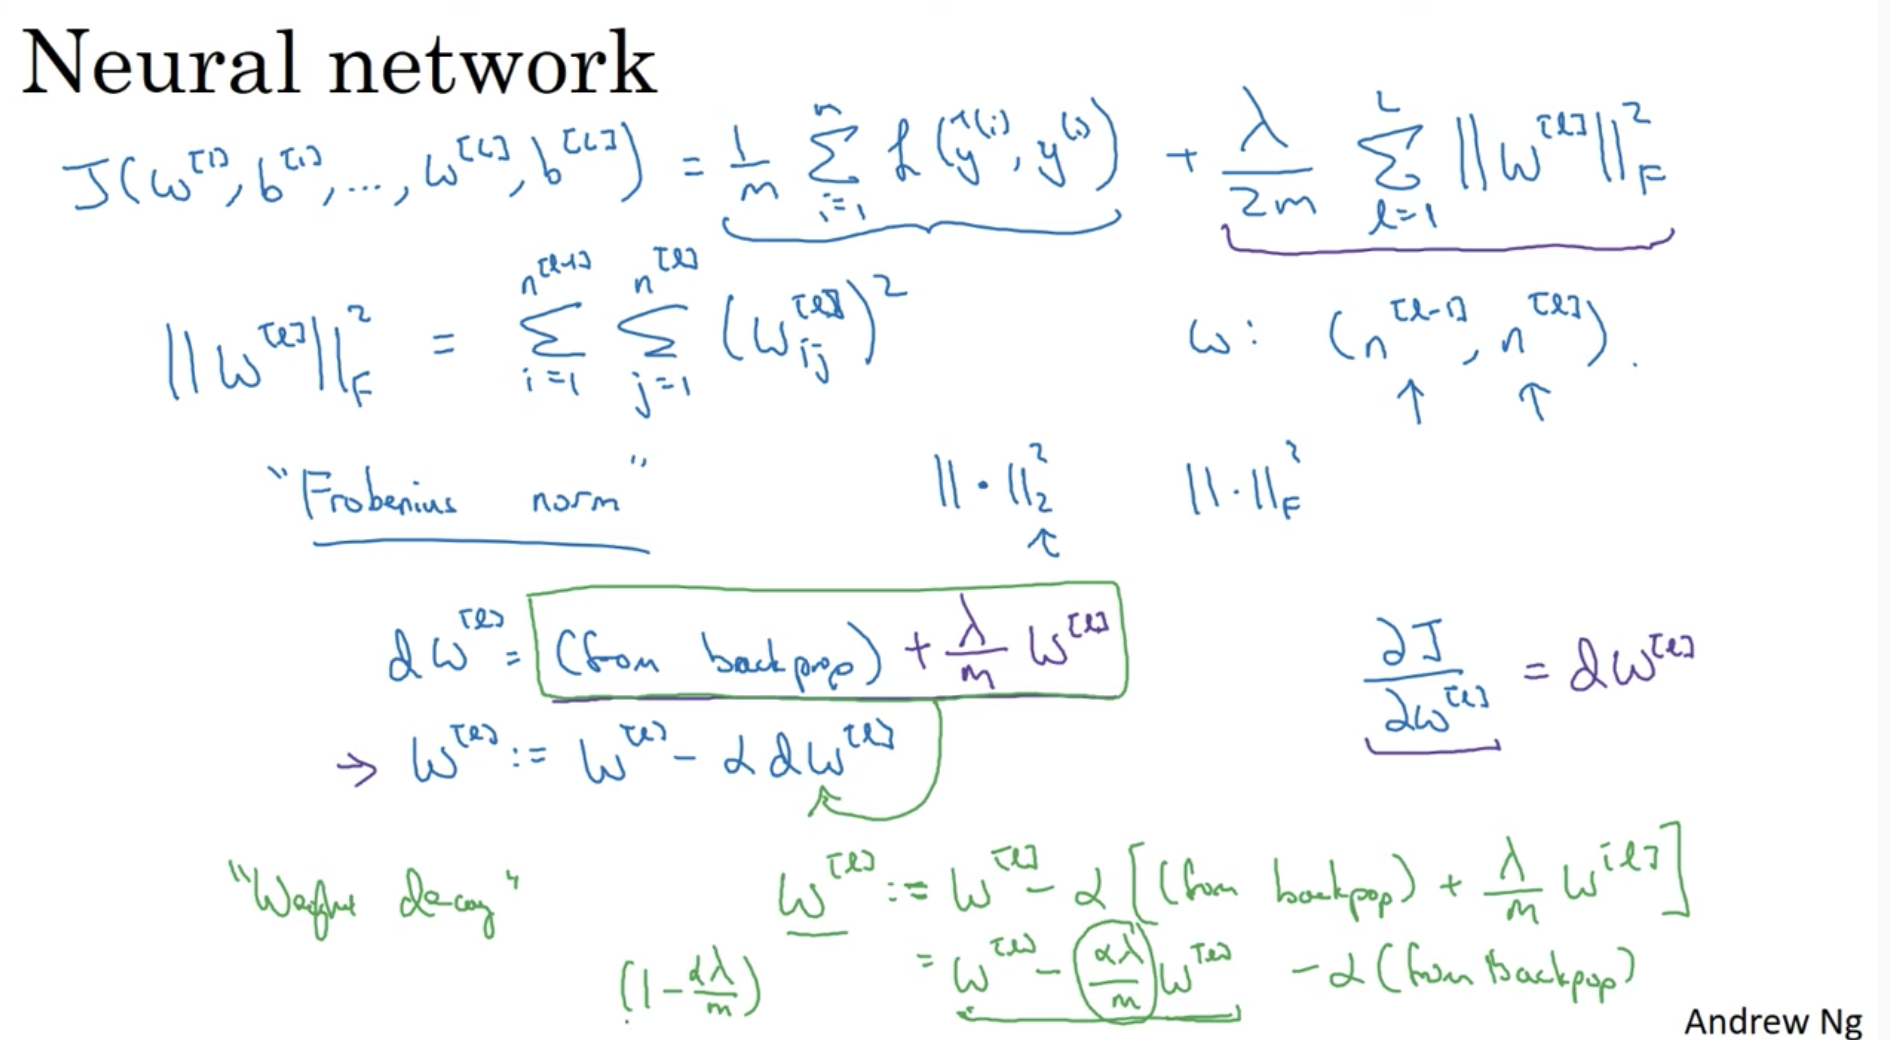 Neural network
J(w^[1], b^[1], ..., w^[L], b^[L]) = 1/m ∑_{i=1}^{n} L(ŷ^(i), y^(i)) + λ/2m ∑_{l=1}^{L} ||w^[l]||²_F
||w^[l]||²_F = ∑_{i=1}^{n^[l-1]} ∑_{j=1}^{n^[l]} (w_ij^[l])² w: (n^[l-1], n^[l]).
"Frobenius norm" ||·||²_2 ||·||²_F
dw^[l] = (from backprop) + λ/m w^[l] ∂J/∂w^[l] = dw^[l]
→ w^[l] := w^[l] - α dw^[l]
"Weight decay" w^[l] := w^[l] - α [(from backpop) + λ/m w^[l]]
(1 - αλ/m) = w^[l] - αλ/m w^[l] - α (from backpop)
Andrew Ng